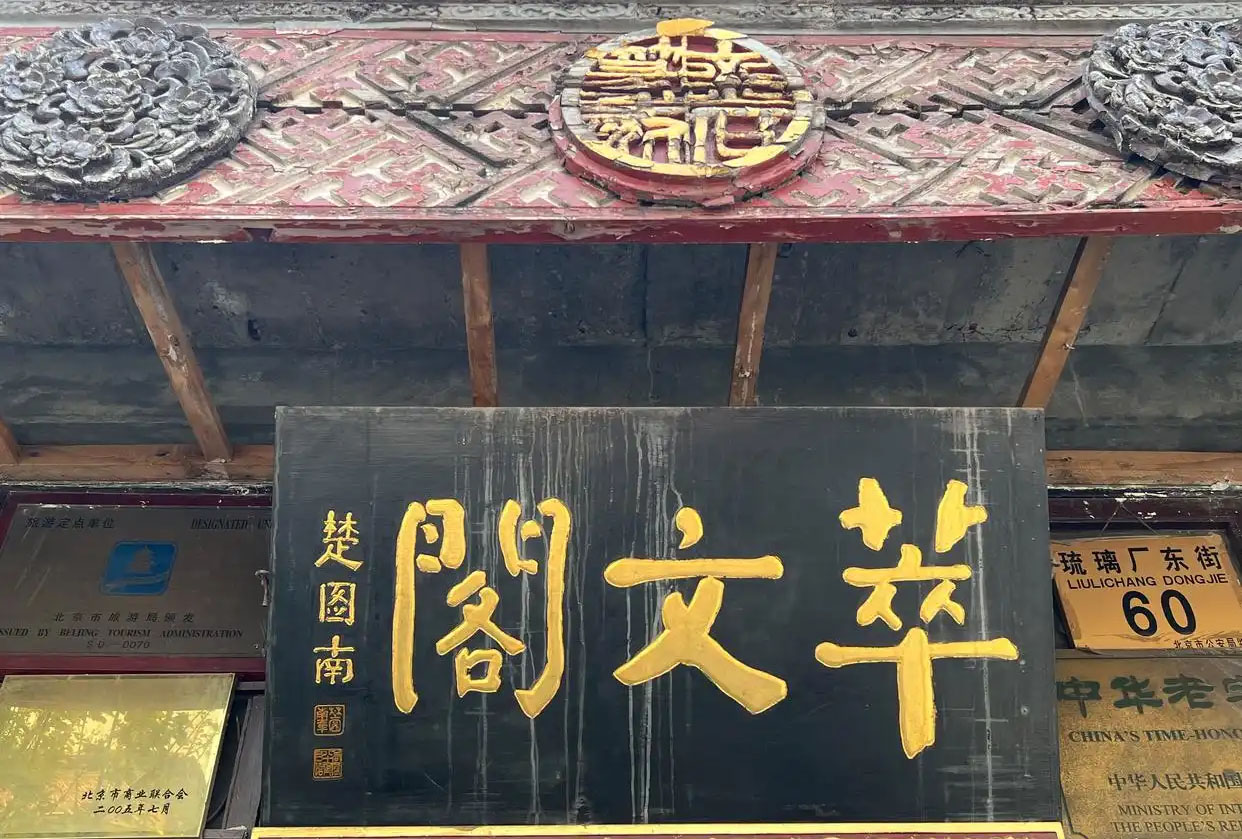 萃文閣
楚圖南
旅游定点单位
DESIGNATED UN
北京市旅游局颁发
ISSUED BY BEIJING TOURISM ADMINISTRATION
SD-0070
北京市商业联合会
二00五年七月
琉璃厂东街
LIULICHANG DONGJIE
60
北京市公安局
中华老字
CHINA'S TIME-HONO
中华人民共和国
MINISTRY OF
THE PEOPLE'S